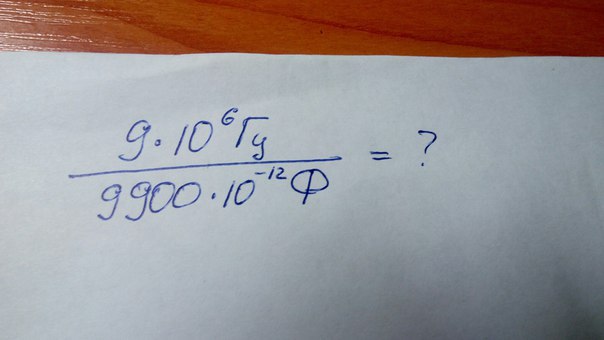 9·10⁶Гц
9900·10⁻¹²Ф = ?